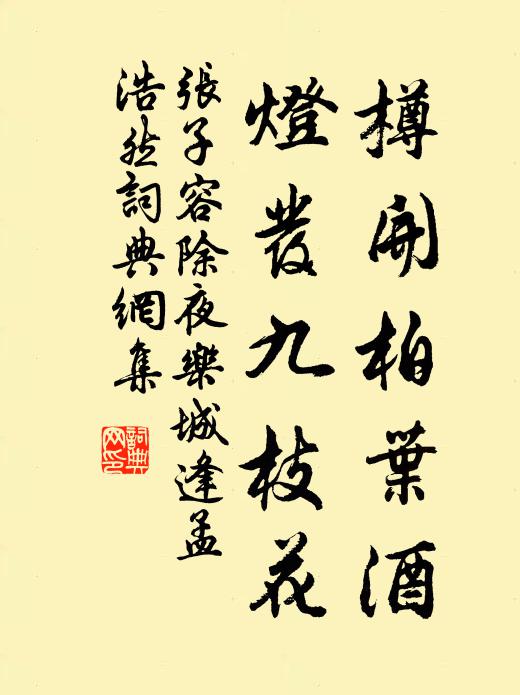 樽開柏葉酒
燈發九枝花
張子容除夜樂城逢孟
浩然詞典網集
詞典
网印